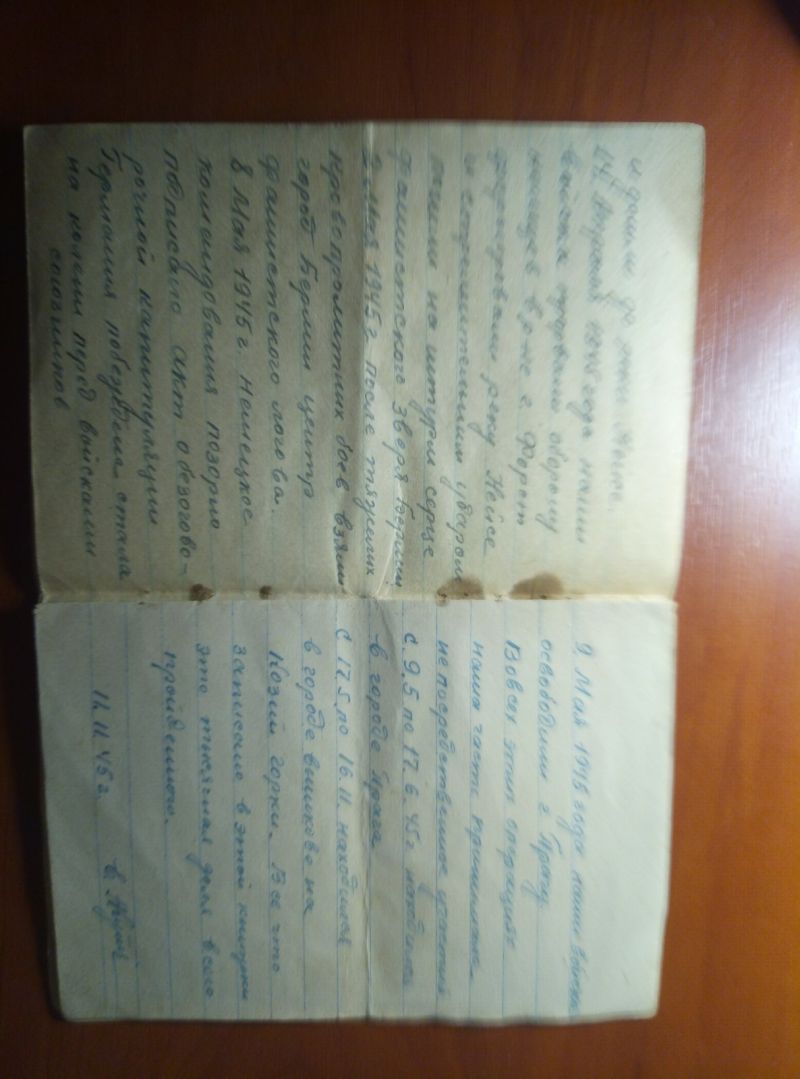 и дошли до реки
14 Апреля 1945 года наши
войска прорвали оборону
немцев в р-не г. Форст
форсировали реку Нейсе
и стремительным ударом
пошли на штурм сердце
фашистского зверя Берлин
2 Мая 1945 г после тяжелых
кровопролитных боев взяли
город Берлин центр
фашистского логова.
8 Мая 1945 г. немецкое
командования позорно
подписало акт о безогово-
рочной капитуляции
Германия побеждена стала
на колени перед войсками
союзников
9 Мая 1945 года наши войска
освободили г. Прагу
Во всех этих операциях
наша часть принимала
непосредственное участия
С 9.5 по 17.6.45 г
в городе Прага
С 17.5 по 16.11 находился
в городе на
горки. Все что
записано в этой книжки
это тысячная доля всего
пройденого.
11.45 г.